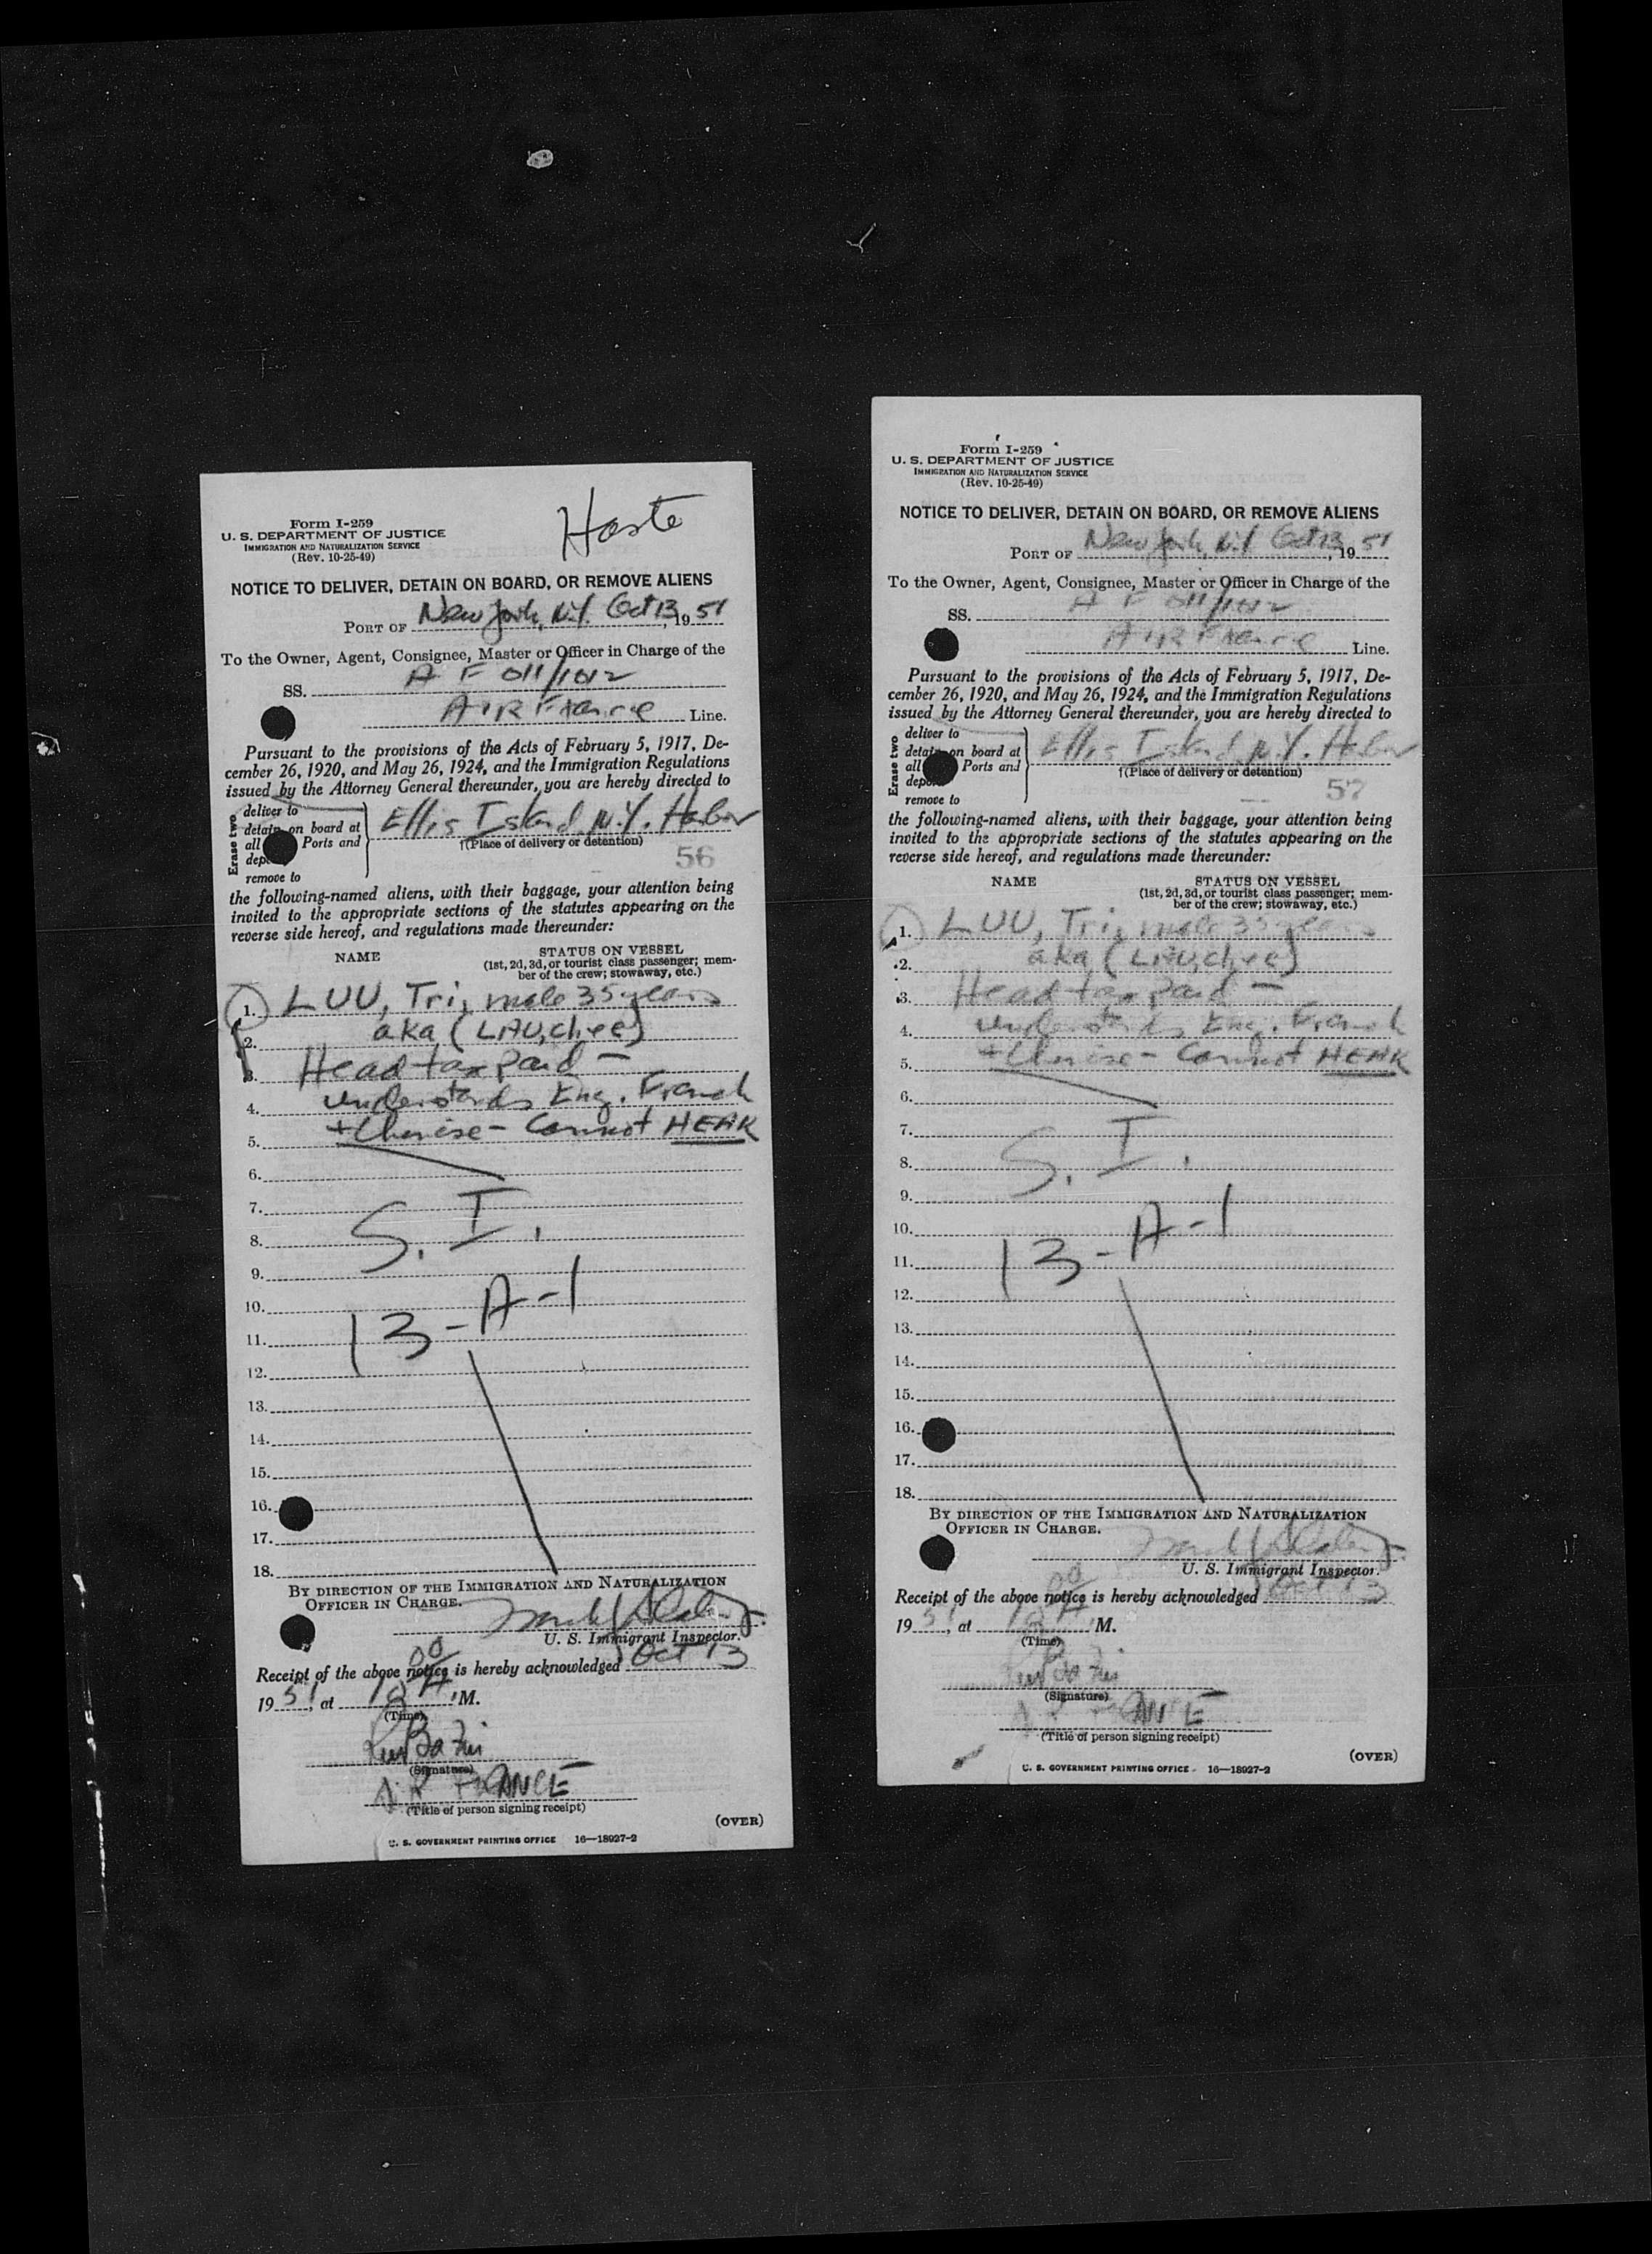 Form I-259
U. S. DEPARTMENT OF JUSTICE
IMMIGRATION AND NATURALIZATION SERVICE
(Rev. 10-25-49)
NOTICE TO DELIVER, DETAIN ON BOARD, OR REMOVE ALIENS
PORT OF New York, N.Y. Oct 13, 19 51
To the Owner, Agent, Consignee, Master or Officer in Charge of the
SS. A F 011/1012
AIR France Line.
Pursuant to the provisions of the Acts of February 5, 1917, De-
cember 26, 1920, and May 26, 1924, and the Immigration Regulations
issued by the Attorney General thereunder, you are hereby directed to
Erase two
deliver to
detain on board at
all Ports and
remove to
Ellis Island, N.Y. Harbor
†(Place of delivery or detention)
56
the following-named aliens, with their baggage, your attention being
invited to the appropriate sections of the statutes appearing on the
reverse side hereof, and regulations made thereunder:
NAME STATUS ON VESSEL
(1st, 2d, 3d, or tourist class passenger; mem-
ber of the crew; stowaway, etc.)
1. LUU, Tri, male 35 years
2. aka
3. Head tax paid —
4. understands Eng. French
5. + Chinese - Cannot HEAR
6.
7.
8. S. I.
9.
10.
11. 13-A-1
12.
13.
14.
15.
16.
17.
18.
BY DIRECTION OF THE IMMIGRATION AND NATURALIZATION
OFFICER IN CHARGE.
U. S. Immigrant Inspector.
Receipt of the above notice is hereby acknowledged Oct 13
19 51, at M.
(Time)
(Signature)
AIR FRANCE
(Title of person signing receipt)
(OVER)
U. S. GOVERNMENT PRINTING OFFICE 16—18927-2
Form I-259
U. S. DEPARTMENT OF JUSTICE
IMMIGRATION AND NATURALIZATION SERVICE
(Rev. 10-25-49)
NOTICE TO DELIVER, DETAIN ON BOARD, OR REMOVE ALIENS
PORT OF New York, N.Y. Oct 13, 19 51
To the Owner, Agent, Consignee, Master or Officer in Charge of the
SS. A F 011/1012
AIR France Line.
Pursuant to the provisions of the Acts of February 5, 1917, De-
cember 26, 1920, and May 26, 1924, and the Immigration Regulations
issued by the Attorney General thereunder, you are hereby directed to
Erase two
deliver to
detain on board at
all Ports and
remove to
Ellis Island, N.Y. Harbor
†(Place of delivery or detention)
57
the following-named aliens, with their baggage, your attention being
invited to the appropriate sections of the statutes appearing on the
reverse side hereof, and regulations made thereunder:
NAME STATUS ON VESSEL
(1st, 2d, 3d, or tourist class passenger; mem-
ber of the crew; stowaway, etc.)
1. LUU, Tri, male 35 years
2. aka
3. Head tax paid —
4. understands Eng. French
5. + Chinese - Cannot HEAR
6.
7.
8. S. I.
9.
10.
11. 13-A-1
12.
13.
14.
15.
16.
17.
18.
BY DIRECTION OF THE IMMIGRATION AND NATURALIZATION
OFFICER IN CHARGE.
U. S. Immigrant Inspector.
Receipt of the above notice is hereby acknowledged Oct 13
19 51, at M.
(Time)
(Signature)
AIR FRANCE
(Title of person signing receipt)
(OVER)
U. S. GOVERNMENT PRINTING OFFICE 16—18927-2